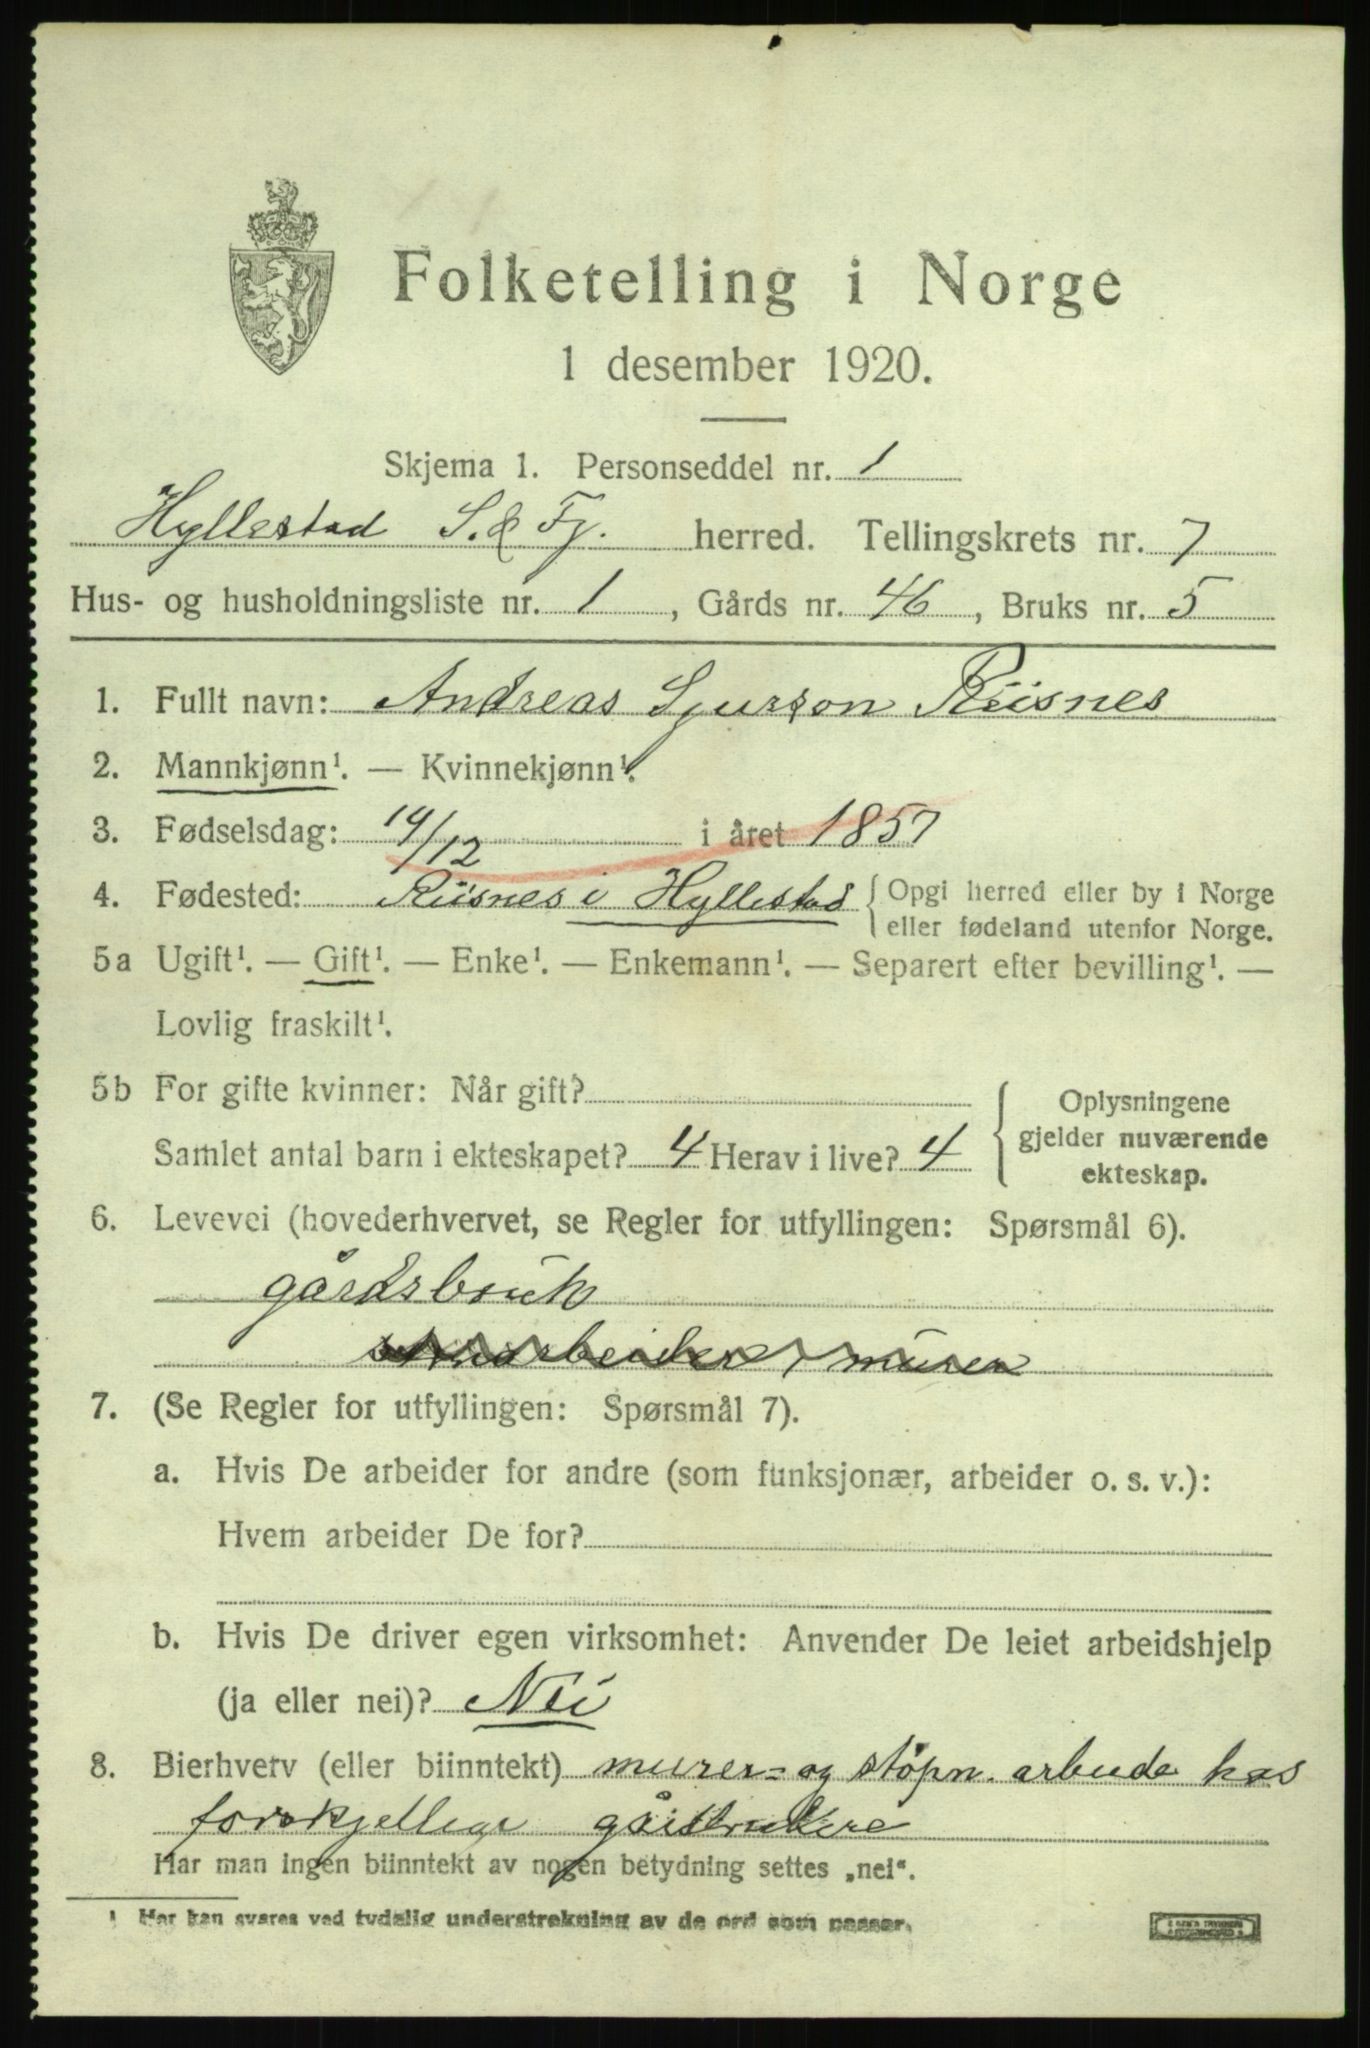 Folketelling i Norge
1 desember 1920.
Skjema 1. Personseddel nr. 1
Hyllestad S. & Fj. herred. Tellingskrets nr. 7
Hus- og husholdningsliste nr. 1, Gårds nr. 46, Bruks nr. 5
1. Fullt navn: Andreas Sjurson Riisnes
2. Mannkjønn¹. — Kvinnekjønn¹.
3. Fødselsdag: 14/12 i året 1857
4. Fødested: Riisnes i Hyllestad { Opgi herred eller by i Norge
eller fødeland utenfor Norge.
5a Ugift¹. — Gift¹. — Enke¹. — Enkemann¹. — Separert efter bevilling¹. —
Lovlig fraskilt¹.
5b For gifte kvinner: Når gift?
Samlet antal barn i ekteskapet? 4 Herav i live? 4
{ Oplysningene
gjelder nuværende
ekteskap.
6. Levevei (hovederhvervet, se Regler for utfyllingen: Spørsmål 6).
gårdsbruk
murer
7. (Se Regler for utfyllingen: Spørsmål 7).
a. Hvis De arbeider for andre (som funksjonær, arbeider o. s. v.):
Hvem arbeider De for?
b. Hvis De driver egen virksomhet: Anvender De leiet arbeidshjelp
(ja eller nei)? Nei
8. Bierhverv (eller biinntekt) murer- og støpn. arbeide hos
forskjellige gårdbrukere
Har man ingen biinntekt av nogen betydning settes „nei“.
¹ Her kan svares ved tydelig understrekning av de ord som passer.